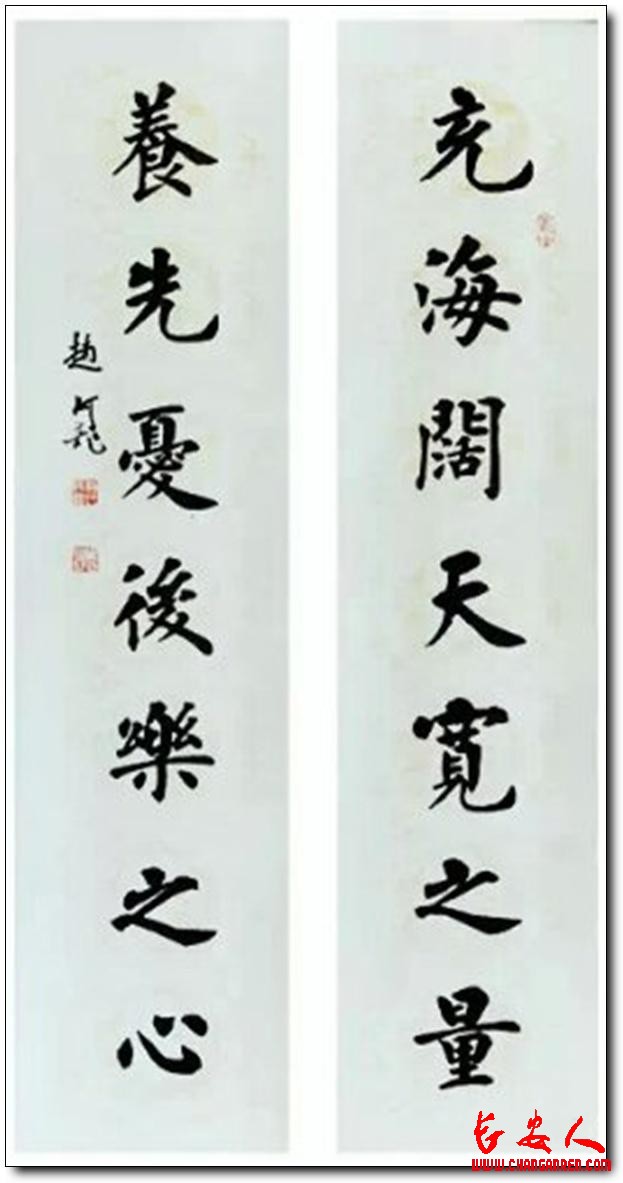 充海闊天寬之量
養先憂後樂之心
趙
长安人